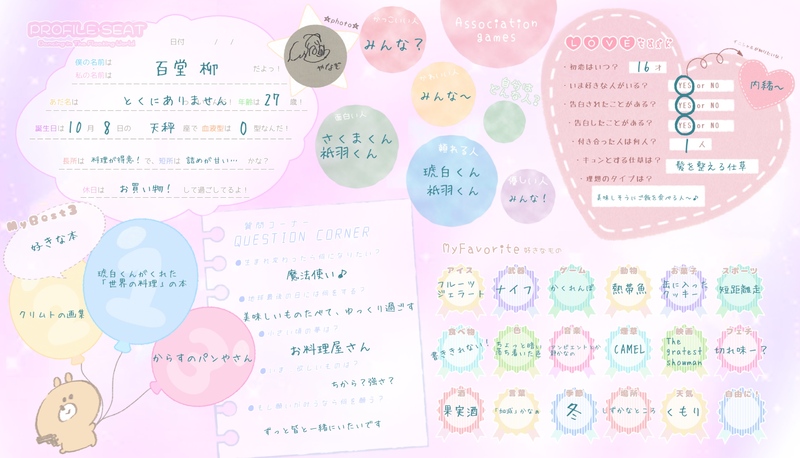 PROFILE SEAT
日付 / /
僕の名前は
私の名前は
百堂 柳
だよっ!
あだ名は とくにありません! 年齢は 27 歳!
誕生日は 10 月 8 日の 天秤 座で 血液型は O 型なんだ!
長所は 料理が得意! で、短所は 詰めが甘い… かな?
休日は お買い物! して過ごしてるよ!
★photo★
やなぎ
みんな?
Association
games
みんな~
面白い人
さくまくん
祇羽くん
頼れる人
琥白くん
祇羽くん
優しい人
みんな!
LOVE
・初恋はいつ? 16 才
・いま好きな人がいる? YES or NO
・告白されたことがある? YES or NO
・告白したことがある? YES or NO
・付き合った人は何人? 1 人
・キュンとする仕草は? 髪を整える仕草
・理想のタイプは?
美味しそうにご飯を食べる人~♪
内緒~
My Best 3
好きな本
琥白くんがくれた
「世界の料理」の本
クリムトの画集
からすのパンやさん
質問コーナー
QUESTION CORNER
魔法使い♪
美味しいものたべて、ゆっくり過ごす
お料理屋さん
ちから?強さ?
ずっと皆と一緒にいたいです
MyFavorite 好きなもの
アイス
フルーツ
ジェラート
武器
ナイフ
ゲーム
かくれんぼ
動物
熱帯魚
お菓子
缶に入った
クッキー
スポーツ
短距離走
食べ物
書ききれない!
色
ちょっと暗い
落ち着いた色
音楽
CAMEL
映画
The
gratest
showman
切れ味ー?
酒
果実酒
言葉
季節
冬
場所
しずかなところ
天気
くもり
自由に!